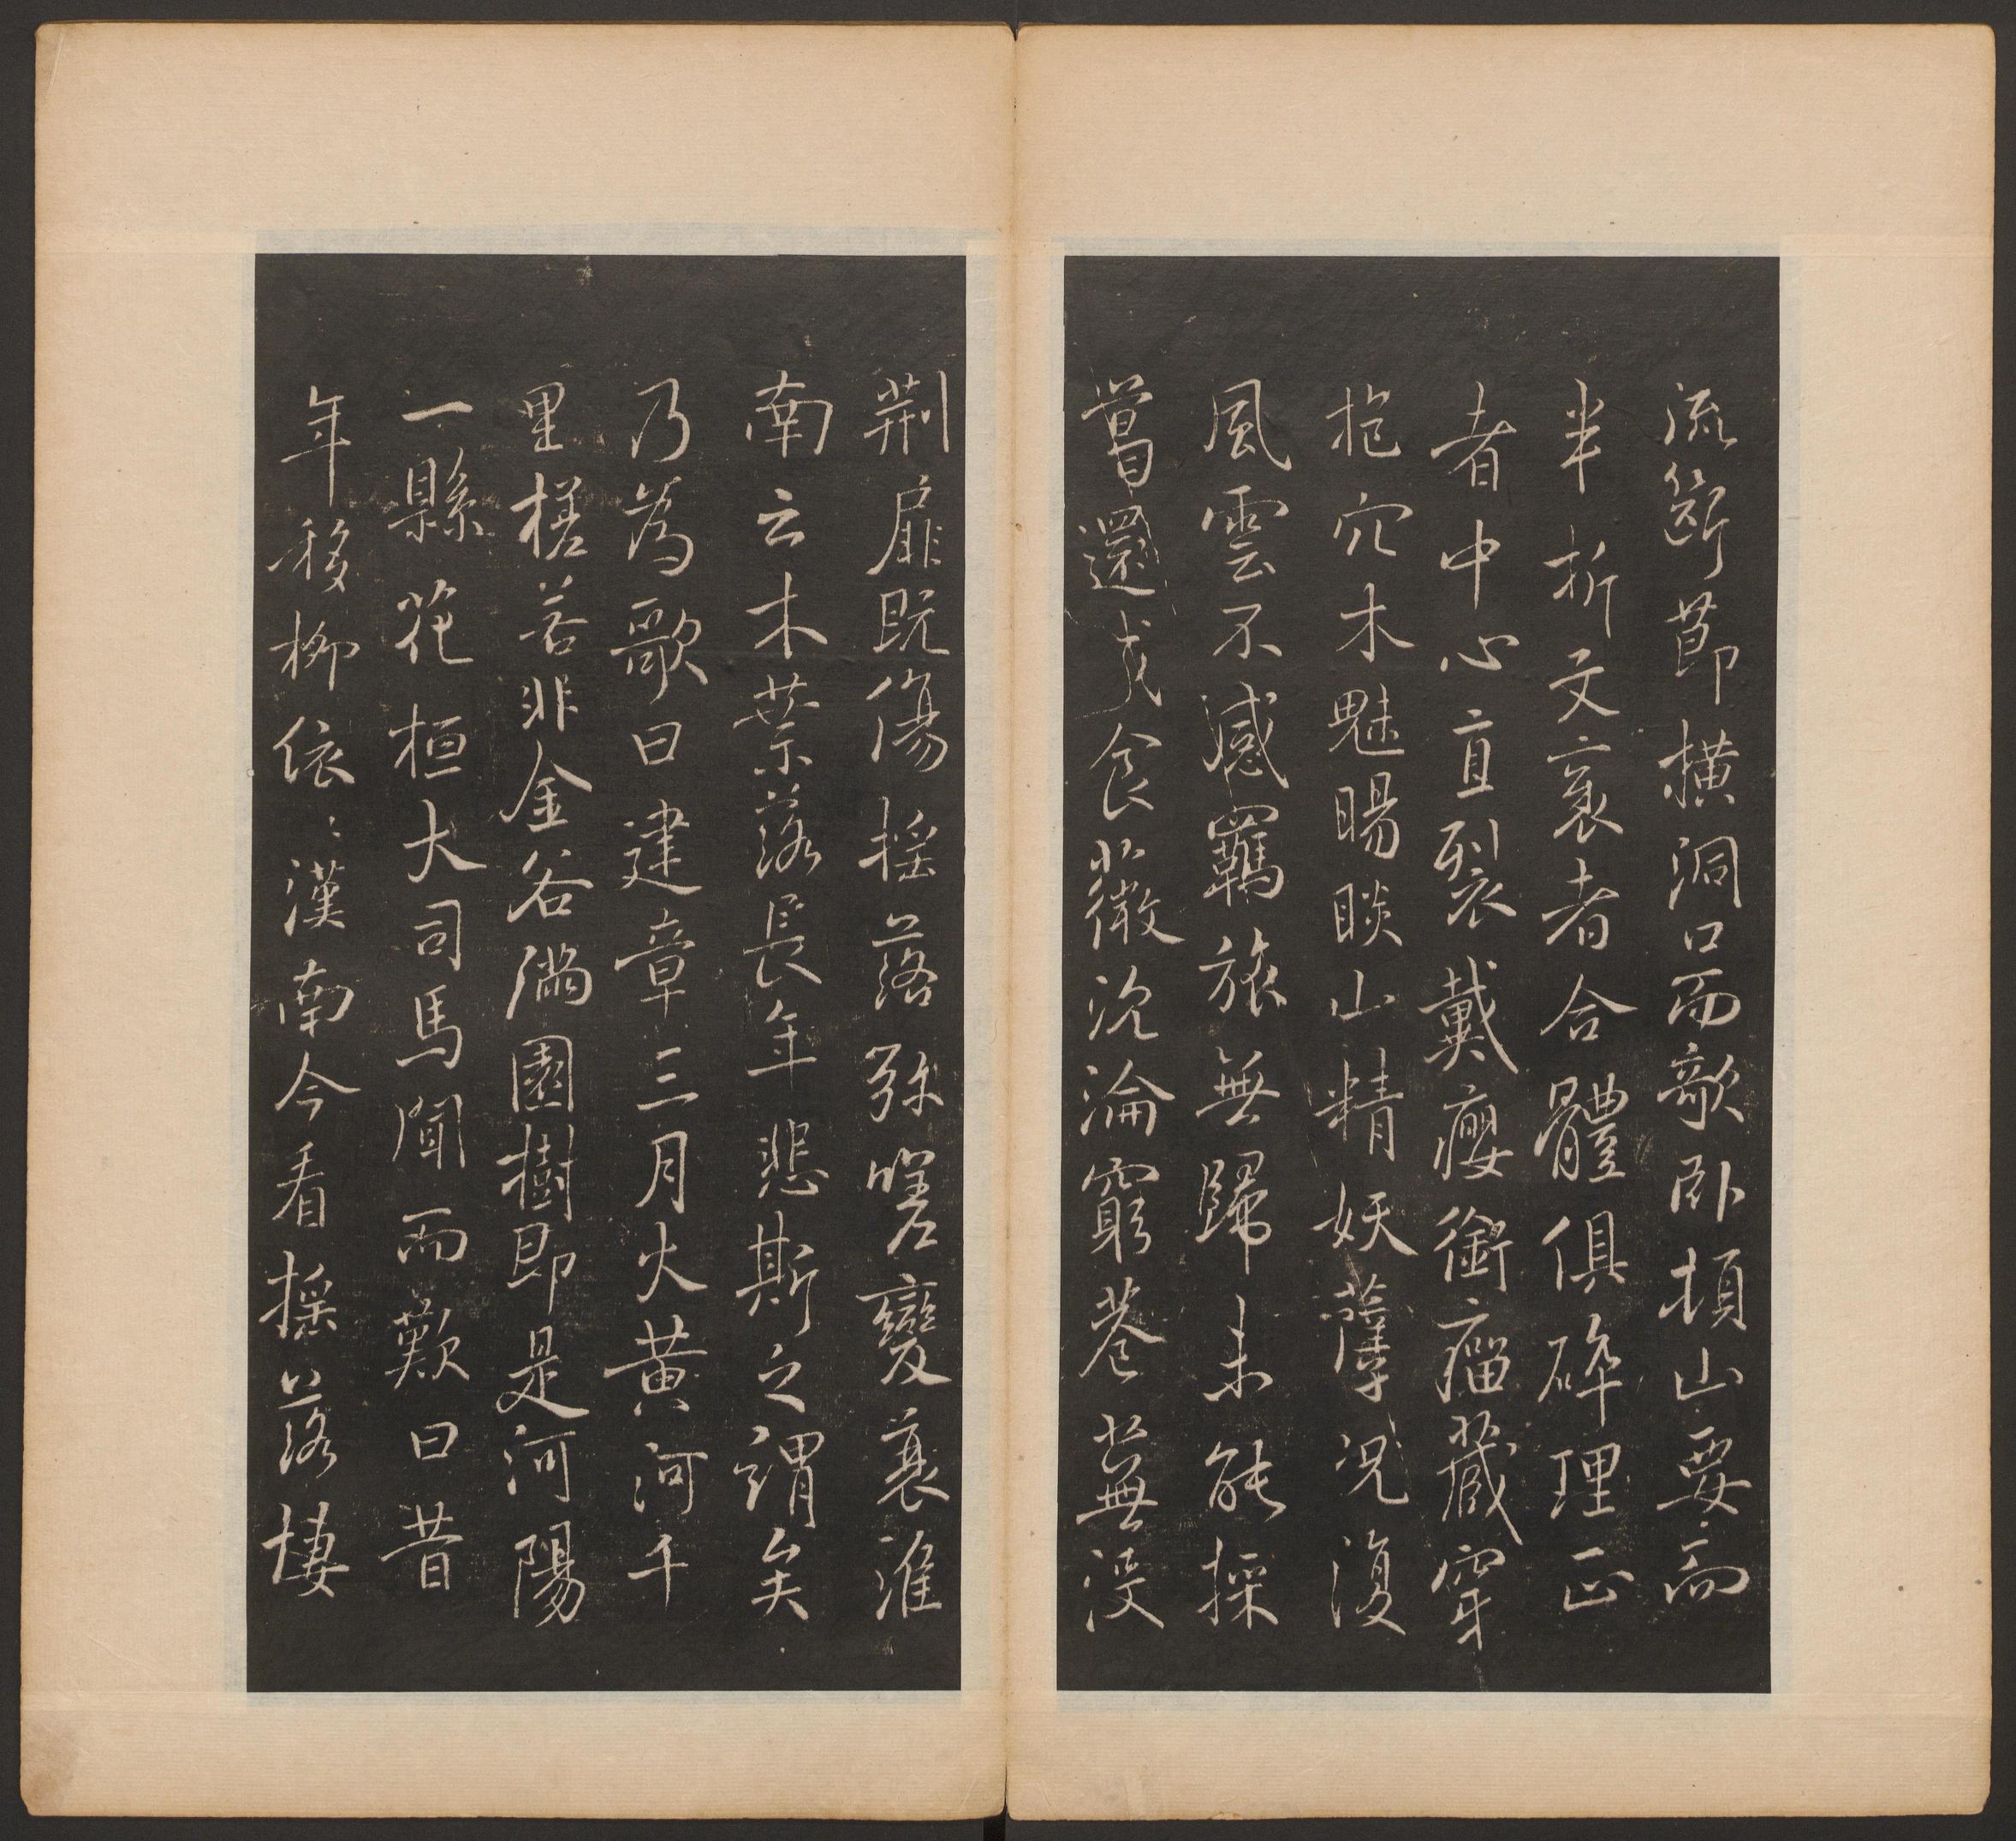 流斷節橫洞口而欹臥頓山要而
半折文衺者合體俱碎理正
者中心直裂戴癭銜瘤藏穿
抱穴木魅睗睒山精妖孽況復
風雲不感羈旅無歸未能採
葛還成食薇沉淪窮巷蕪没
荊扉既傷搖落弥嗟變衰淮
南云木葉落長年悲斯之謂矣
乃為歌曰建章三月火黃河千
里槎若非金谷滿園樹即是河陽
一縣花桓大司馬聞而歎曰昔
年移柳依〻漢南今看搖落悽